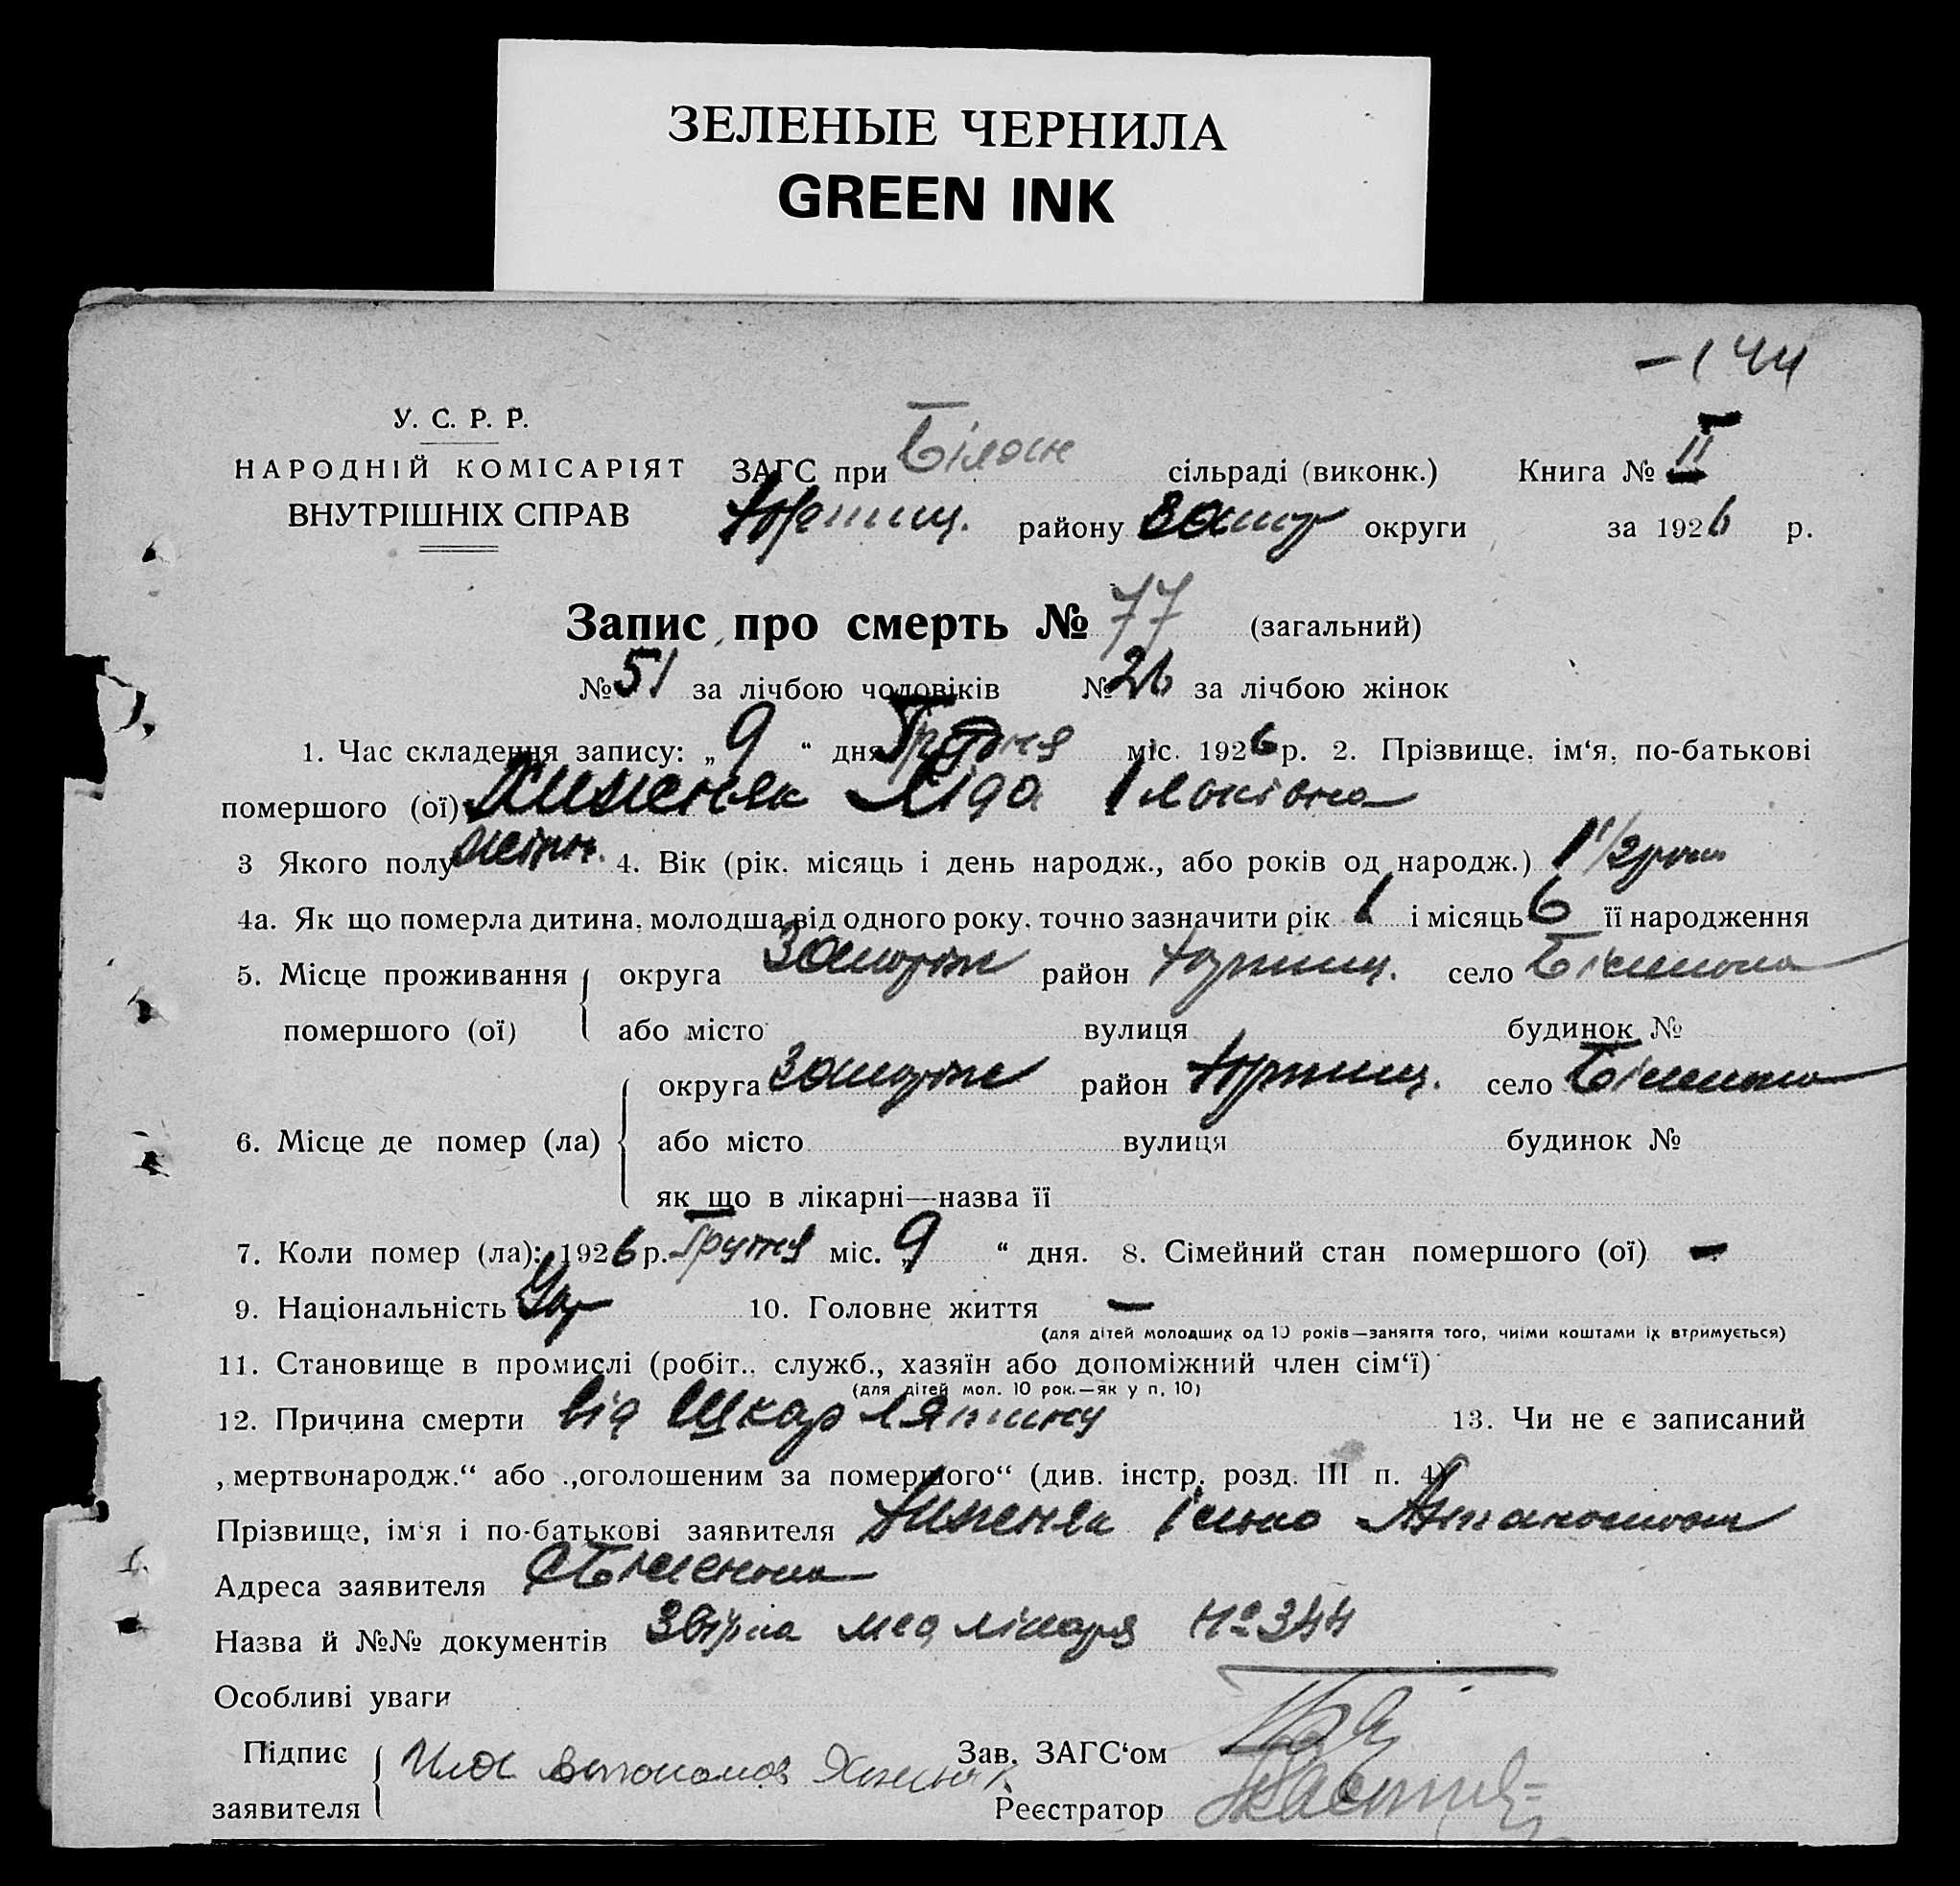 ЗЕЛЕНЫЕ ЧЕРНИЛА
GREEN INK
-144
У. С. Р. Р.
НАРОДНІЙ КОМІСАРІЯТ
ВНУТРІШНІХ СПРАВ
ЗАГС при сільраді (виконк.) Книга № II
району округи за 1926 р.
Запис про смерть № 77 (загальний)
№ 51 за лічбою чоловіків № 26 за лічбою жінок
1. Час складення запису: „ 9 “ дня Грудня міс. 1926 р. 2. Прізвище, ім‘я, по-батькові
помершого (ої) Хиженяк Ліда
3 Якого полу жіноч. 4. Вік (рік. місяць і день народж., або років од народж.) 1 1/2 роки
4а. Як що померла дитина, молодша від одного року, точно зазначити рік 1 і місяць 6 її народження
5. Місце проживання округа Запоріж район село
помершого (ої) або місто вулиця будинок №
округа Запоріж район село
6. Місце де помер (ла) або місто вулиця будинок №
як що в лікарні—назва її
7. Коли помер (ла): 1926 р. Грудня міс. 9 “ дня. 8. Сімейний стан помершого (ої) —
9. Національність Укр 10. Головне життя —
(для дітей молодших од 10 років—заняття того, чиїми коштами їх втримується)
11. Становище в промислі (робіт., служб., хазяїн або допоміжний член сім‘ї)
(для дітей мол. 10 рок.—як у п. 10)
12. Причина смерти від Шкарлятини 13. Чи не є записаний
„мертвонародж.“ або „оголошеним за помершого“ (див. інстр. розд. III п. 4)
Прізвище, ім‘я і по-батькові заявителя Хиженяк
Адреса заявителя
Назва й №№ документів мед лікаря № 344
Особливі уваги
Підпис Зав. ЗАГС‘ом
заявителя Реєстратор